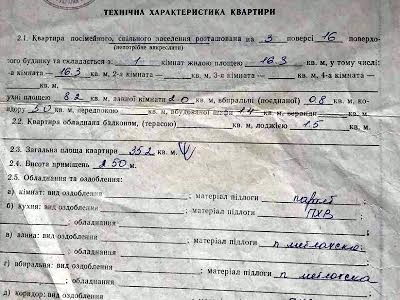 УКРАЇНА
ТЕХНІЧНА ХАРАКТЕРИСТИКА КВАРТИРИ
2.1. Квартира посімейного, спільного заселення розташована на 3 поверсі 16 поверхо-
(непотрібне викреслити)
вого будинку та складається з 1 кімнат жилою площею 16.3 кв. м, у тому числі:
-а кімната — 16.3 кв. м, 2-а кімната — кв. м, 3-я кімната — кв. м, 4-а кімната —
кв. м,
ухні площею 8.2 кв. м, ванної кімнати 2.0 кв. м, вбиральні (поєднаної) 0.8 кв. м, ко-
идору 5.0 кв. м, передпокою кв. м, вбудованої шафи 1.4 кв. м, веранди кв. м.
2.2. Квартира обладнана балконом, (терасою) кв. м, лоджією 1.5 кв. м.
2.3. Загальна площа квартири 35.2 кв. м.
2.4. Висота приміщень 2.50 м.
2.5. Обладнання та оздоблення:
а) кімнат: вид оздоблення ; матеріал підлоги паркет
б) кухня: вид оздоблення ; матеріал підлоги ПХВ
; обладнання
в) ванна: вид оздоблення ; матеріал підлоги п
; обладнання
г) вбиральня: вид оздоблення ; матеріал підлоги п
; обладнання
д) коридор: вид оздоблення ; матеріал підлоги